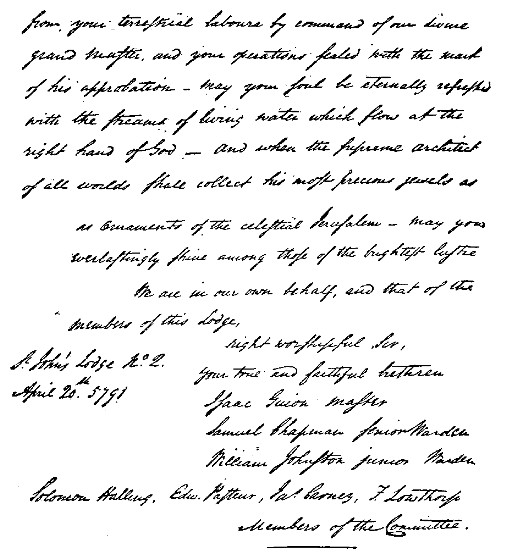 from your terrestrial labours by command of our divine
grand Master, and your operations sealed with the mark
of his approbation – may your soul be eternally refreshed
with the streams of living water which flow at the
right hand of God – And when the supreme architect
of all worlds shall collect his most precious jewels as
as ornaments of the celestial Jerusalem – may you
everlastingly shine among those of the brightest lustre
We are in our own behalf, and that of the
members of this Lodge,
right worshipful Sir,
St. John's Lodge No. 2.
your true and faithful brethren
April 20th. 5791
Isaac Guion master
Samuel Chapman senior Warden
William Johnston junior Warden
Solomon Halling, Edw. Pasteur, Jas. Carney, F. Lowthorp
Members of the Committee.